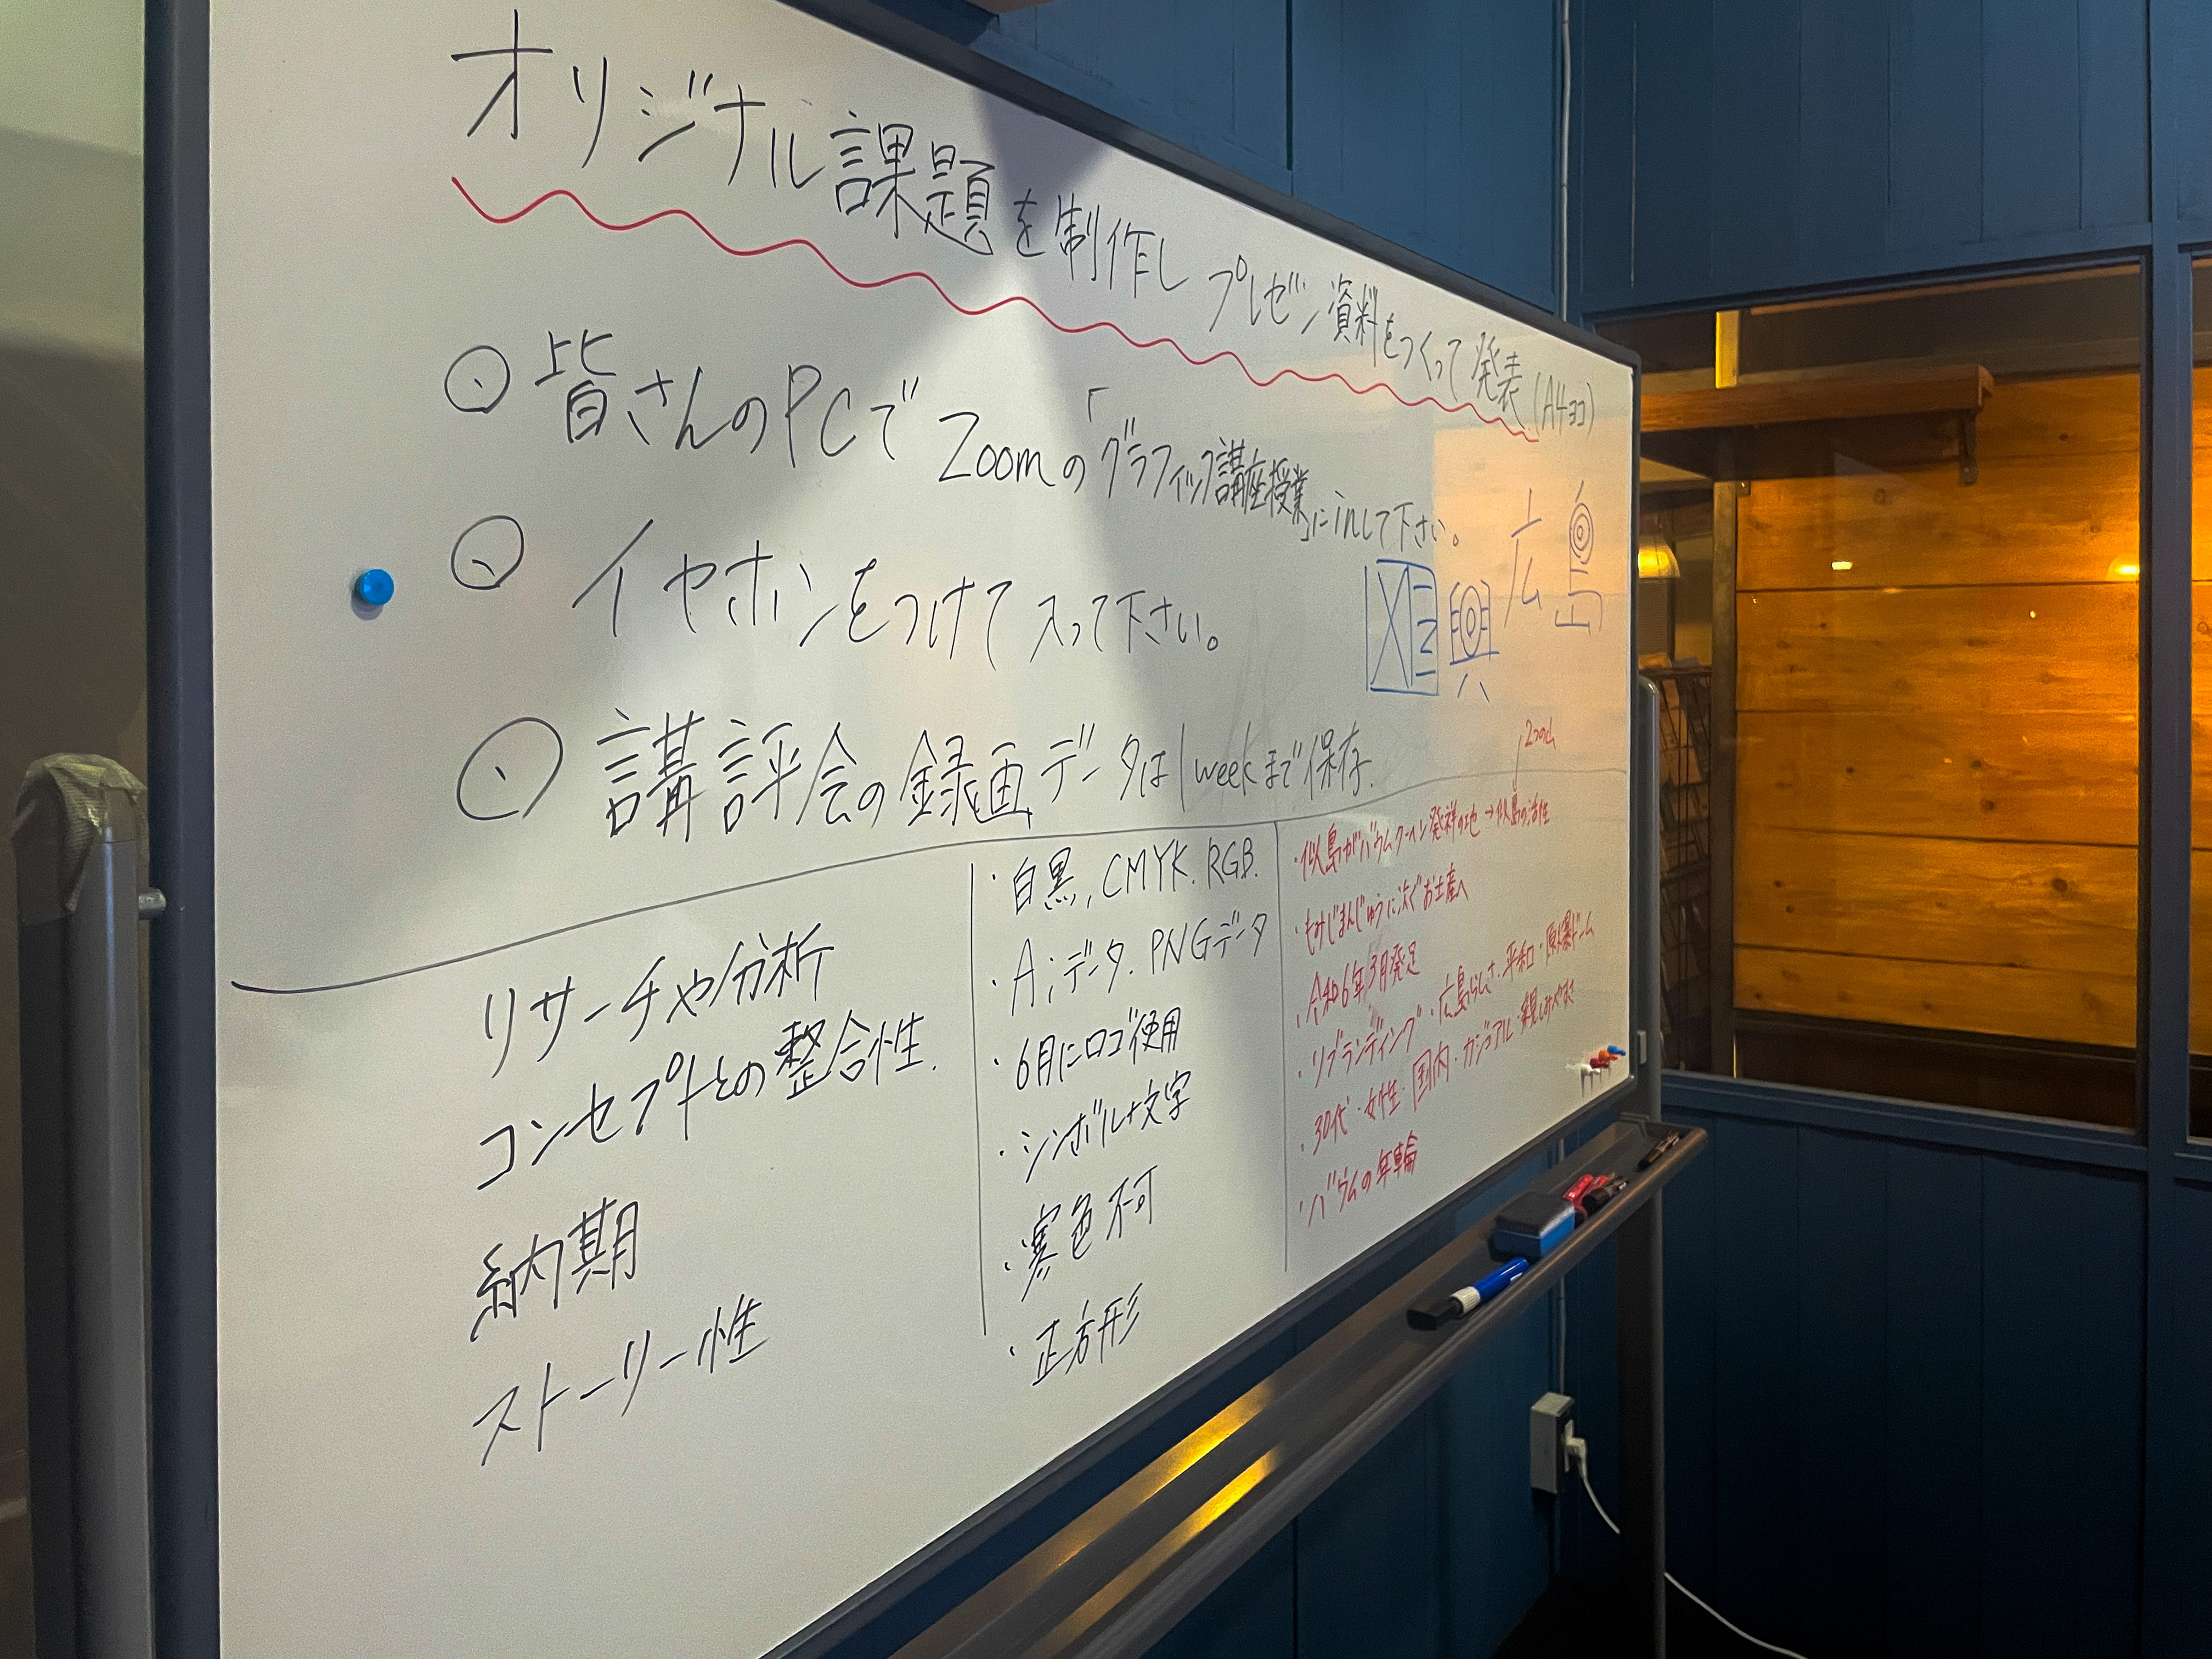 オリジナル課題を制作し プレゼン資料をつくって発表(A4ヨコ)
皆さんのPCで Zoomの「グラフィック講座授業」にinして下さい。
イヤホンをつけて入って下さい。
広島
講評会の録画データは1weekまで保存.
リサーチや分析
コンセプトとの整合性.
納期
ストーリー性
・白黒, CMYK. RGB.
・Aiデータ. PNGデータ
・6月にロゴ使用
・シンボル+文字
・寒色不可
・正方形
・似島がバウムクーヘン発祥の地→似島の活性
・もみじまんじゅうに次ぐお土産へ
・令和6年3月発足
・リブランディング・広島らしさ・平和・原爆ドーム
・30代・女性・国内・カジュアル・親しみやすさ
・バウムの年輪